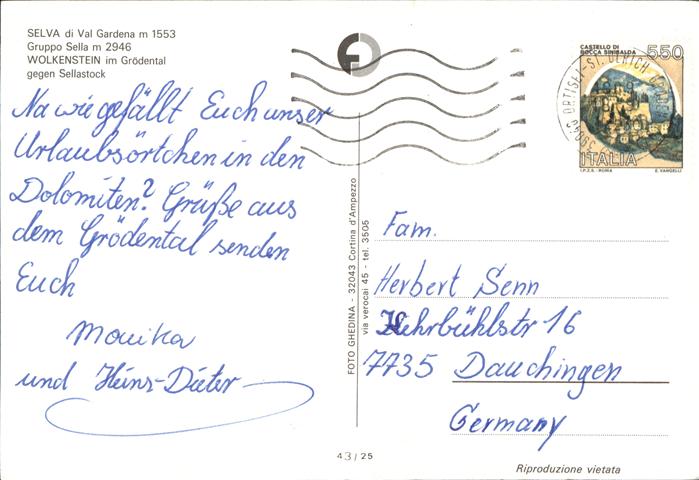 SELVA di Val Gardena m 1553
Gruppo Sella m 2946
WOLKENSTEIN im Grödental
gegen Sellastock
Na wie gefällt Euch unser
Urlaubsörtchen in den
Dolomiten? Grüße aus
dem Grödental senden
Euch
Monika
und Heinz-Dieter
FOTO GHEDINA - 32043 Cortina d'Ampezzo
via verocai 45 - tel. 3505
CASTELLO DI
ROCCA SINIBALDA
550
ITALIA
I.P.Z.S. - ROMA
E. VANGELLI
ORTISEI-ST. ULRICH
Fam.
Herbert Senn
Hehrbühlstr 16
7735 Dauchingen
Germany
43/25
Riproduzione vietata